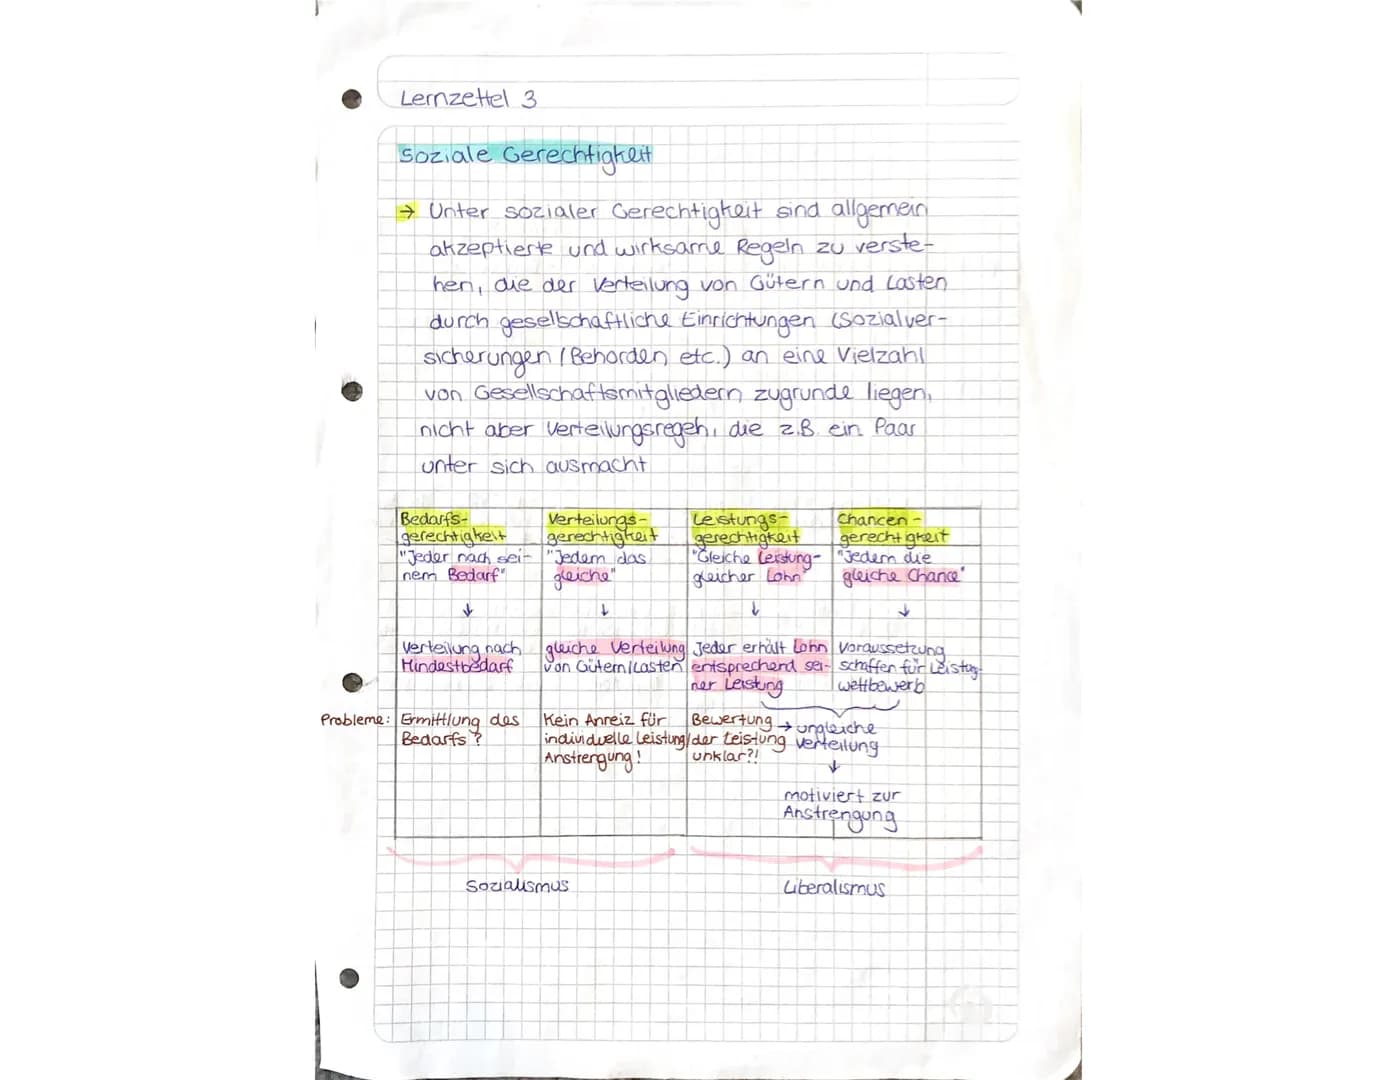 Lernzettel 3
Soziale Gerechtigkeit
→ Unter sozialer Gerechtigkeit sind allgemein
akzeptierte und wirksame Regeln zu verste-
hen, die der Verteilung von Gütern und Lasten
durch gesellschaftliche Einrichtungen (Sozialver-
sicherungen / Behörden etc.) an eine Vielzahl
von Gesellschaftsmitgliedern zugrunde liegen,
nicht aber Verteilungsregeln, die z.B. ein Paar
unter sich ausmacht
Bedarfs-
gerechtigkeit
"Jeder nach sei-
nem Bedarf"
↓
Verteilung nach
Mindestbedarf
Verteilungs-
gerechtigkeit
"Jedem das
gleiche"
↓
gleiche Verteilung
von Gütern/Lasten
Leistungs-
gerechtigkeit
"Gleiche Leistung-
gleicher Lohn"
↓
Jeder erhält Lohn
entsprechend sei-
ner Leistung
Chancen-
gerechtigkeit
"Jedem die
gleiche Chance"
↓
Voraussetzung
schaffen für Leistungs-
wettbewerb
Probleme:
Ermittlung des
Bedarfs?
Kein Anreiz für
individuelle Leistung/
Anstrengung!
Bewertung
der Leistung
unklar?!
→ ungleiche
Verteilung
↓
motiviert zur
Anstrengung
Sozialismus
Liberalismus